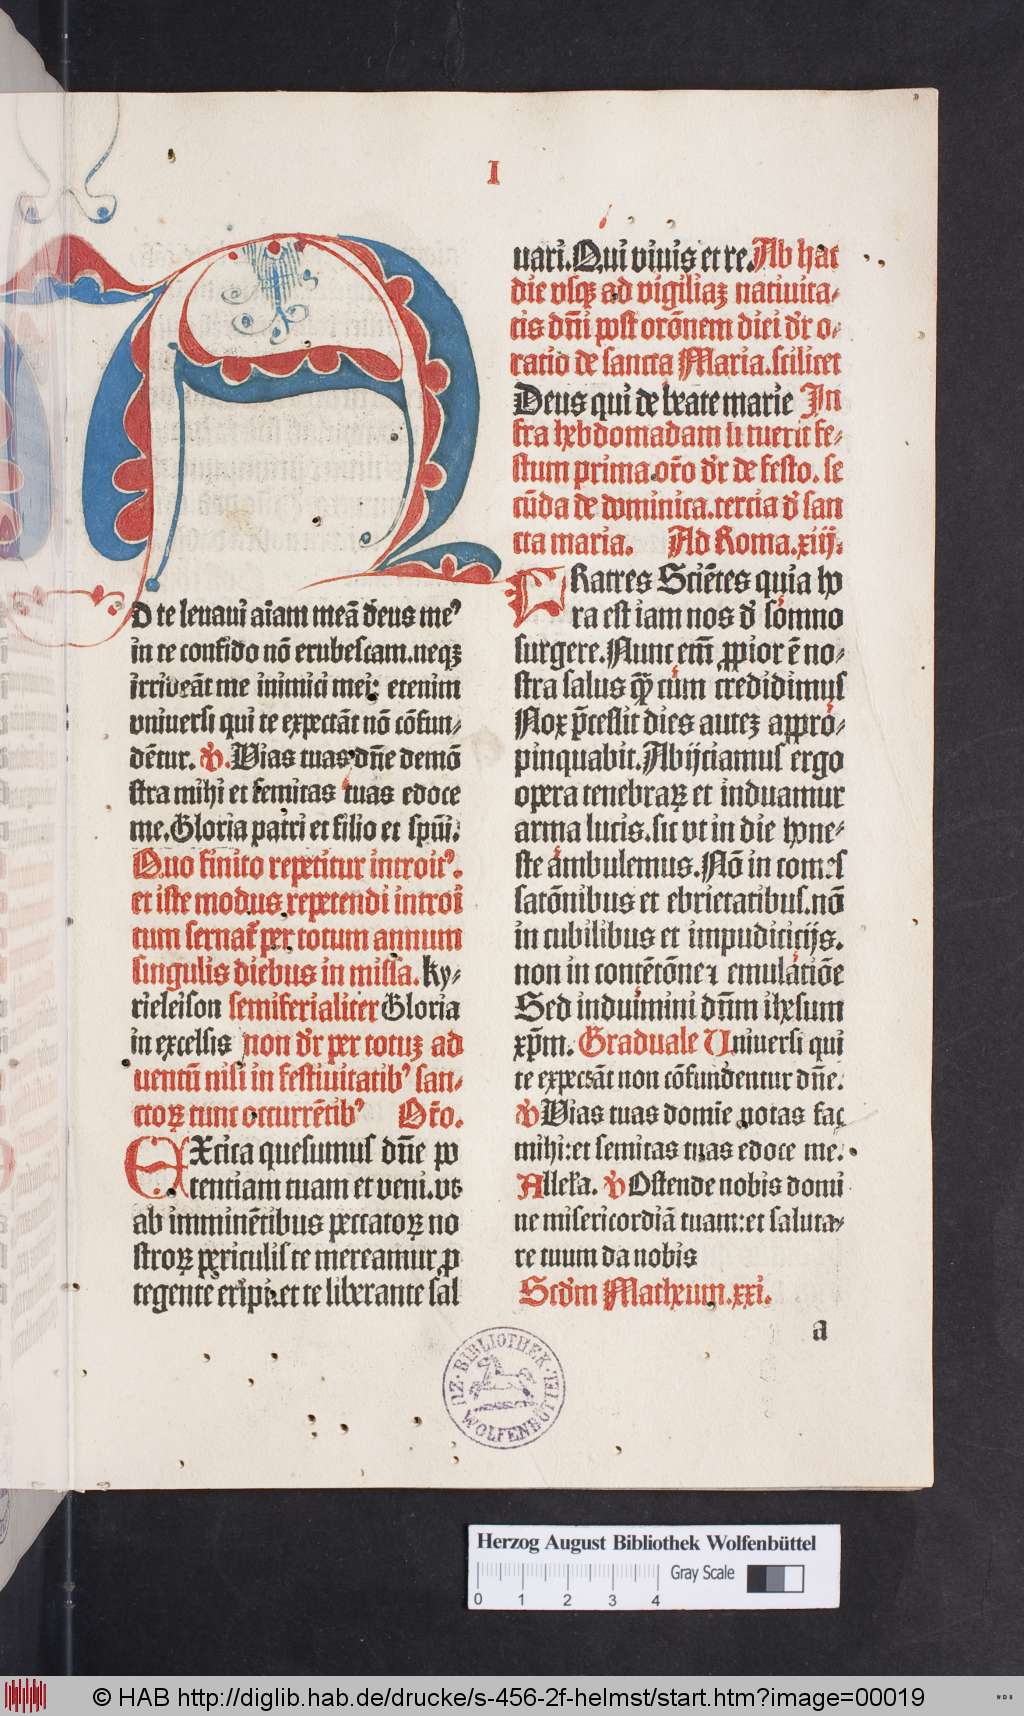 I
AD te leuaui aīam meā deus meꝰ
in te confido nō erubescam.neqꝫ
irrideāt me inimici mei: etenim
vniuersi qui te expectāt nō cōfun-
dētur. ℣.Vias tuas dn̄e demō
stra mihi et semitas tuas edoce
me.Gloria patri et filio et spūi.
Quo finito repetitur introitꝰ.
et iste modus repetendi introi
tum seruat᷑ per totum annum
singulis diebus in missa. Ky-
rieleison semiferialiter Gloria
in excelsis non dr̄ per totuꝫ ad
uentū nisi in festiuitatibꝰ san-
ctoꝝ tunc occurrētibꝰ Or̄o.
EXcita quesumus dn̄e po
tentiam tuam et veni.vt
ab imminētibus peccatoꝝ no
stroꝝ periculis te mereamur ꝓ
tegente eripi:et te liberante sal
uari.Qui viuis et re. Ab hac
die vsqꝫ ad vigiliaꝫ natiuita-
tis dn̄i post orōnem diei dr̄ o-
ratio de sancta Maria.scilicet
Deus qui de beate marie In
fra hebdomadam si fuerit fe-
stum prima.or̄o dr̄ de festo. se
cūda de dominica.tercia d̄ san
cta maria. Ad Roma.xiij.
FRatres Sciētes quia ho
ra est iam nos d̄ somno
surgere.Nunc em̄ ꝓpior ē no-
stra salus qꝫ cum credidimus
Nox p̄cessit dies auteꝫ appro-
pinquabit.Abijciamus ergo
opera tenebraꝝ et induamur
arma lucis.sic vt in die hone-
ste ambulemus.Nō in comes
satōnibus et ebrietatibus.nō
in cubilibus et impudicicijs.
non in contētōne ⁊ emulatiōe
Sed induimini dn̄m ihesum
xp̄m. Graduale Uniuersi qui
te expectāt non cōfundentur dn̄e.
℣ Vias tuas domīe notas fac
mihi:et semitas tuas edoce me.
Allel̄a. ℣ Ostende nobis domi
ne misericordiā tuam:et saluta-
re tuum da nobis
Scd̄m Matheum.xxi.
a
BIBLIOTHEK
ZU WOLFENBÜTTEL
Herzog August Bibliothek Wolfenbüttel
Gray Scale
0 1 2 3 4
© HAB http://diglib.hab.de/drucke/s-456-2f-helmst/start.htm?image=00019